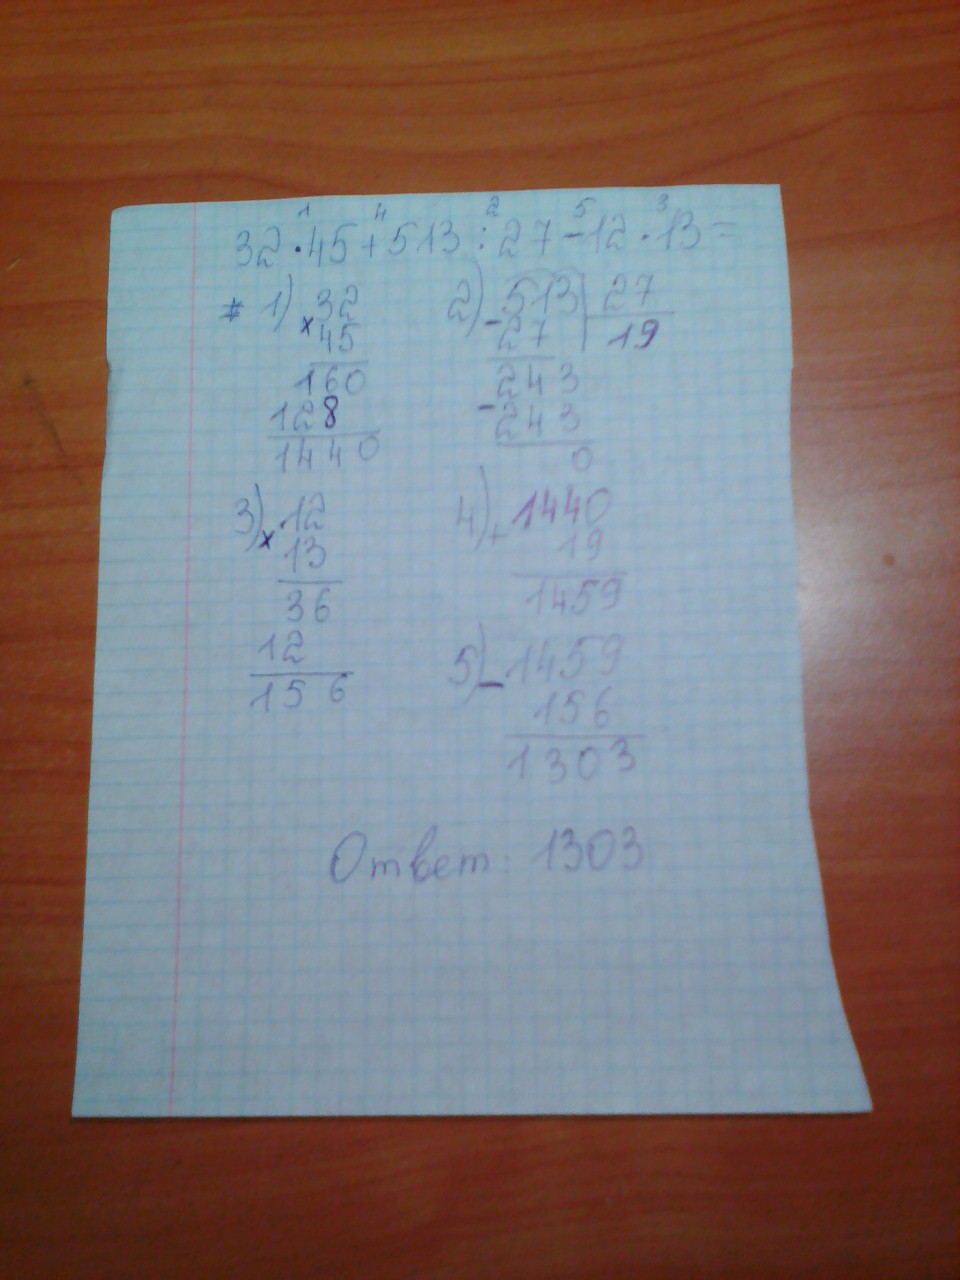 1 4 2 5 3
32·45+513:27-12·13=
1) ×32
45
160
128
1440
2) -513|27
27 19
243
-243
0
3) ×12
13
36
12
156
4) +1440
19
1459
5) -1459
156
1303
Ответ: 1303